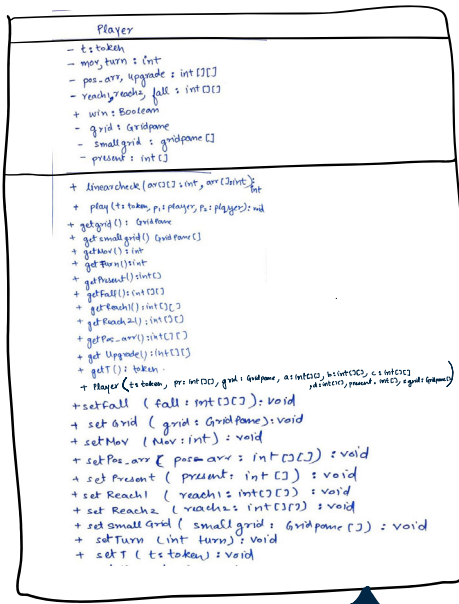 Player
- t: token
- mov, turn : int
- pos_arr, upgrade : int [][]
- reach1, reach2, fall : int [][]
+ win : Boolean
- grid : Gridpane
- smallgrid : gridpane []
- present : int []
+ linearcheck (ar[][] : int, arr []:int): int
+ play (t: token, p1: player, p2: player): void
+ getgrid() : GridPane
+ getsmallgrid() GridPane[]
+ getMov() : int
+ getTurn():int
+ getPresent():int[]
+ getFall():int [][]
+ getReach1():int[][]
+ getReach2():int[][]
+ getPos_arr():int[][]
+ get Upgrade():int[][]
+ getT() : token.
+ Player (t: token, pr: int[][], grid: Gridpane, a:int[][], b:int[][], c: int[][]
, d:int[][], present: int[], sgrid:Gridpane[])
+ setfall ( fall : int [][]) : void
+ set Grid ( grid : GridPane): void
+ setMov (Mov: int) : void
+ setPos_arr ( pos_arr : int [][]) : void
+ set Present ( present: int []) : void
+ set Reach1 ( reach1 : int[][]) : void
+ set Reach2 ( reach2: int[][]) : void
+ set small Grid ( smallgrid : Gridpane []) : void
+ setTurn (int turn): void
+ setT ( t: token) : void